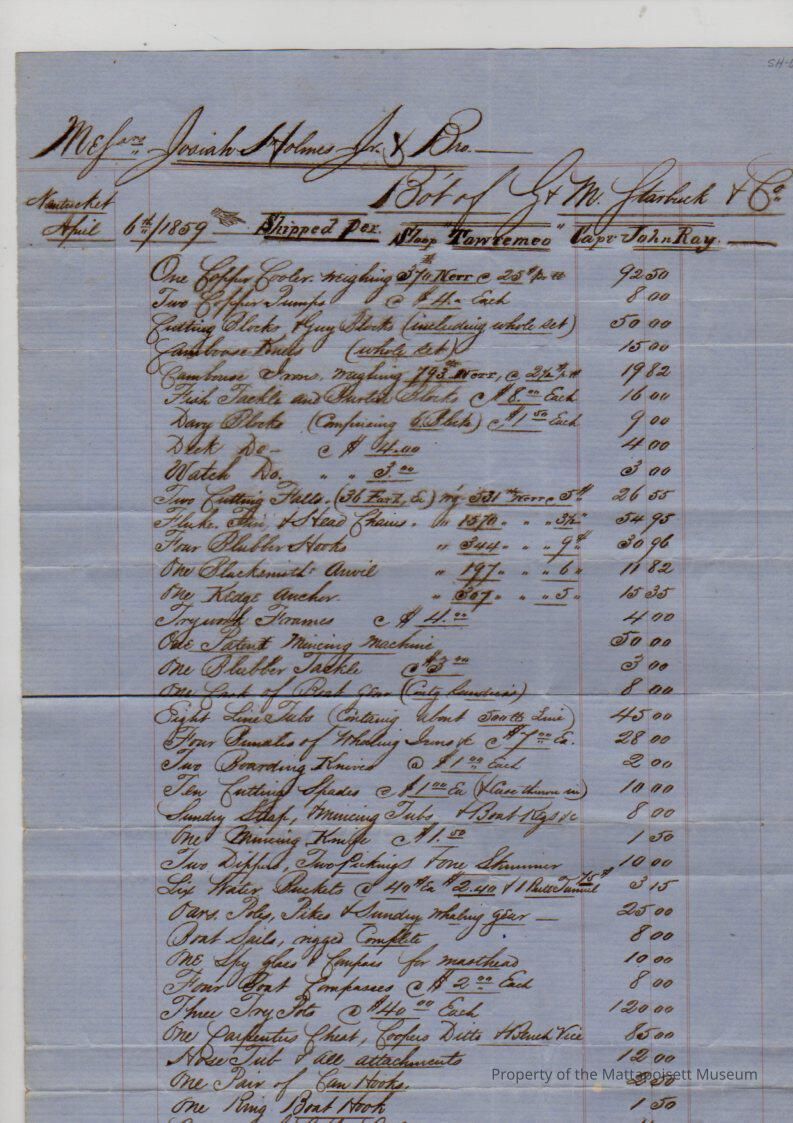 SH-
Messrs. Josiah Holmes Jr. & Bro.
Bot of G & M. Starbuck & Co
Nantucket
April 6th/1859 Shipped per Sloop "Tawtemeo" Capt John Ray.
One Copper Cooler. weighing 370 lb Nett @ 25¢ pr lb 92 50
Two Copper Pumps @ $4.- Each 8 00
Cutting Blocks, & Guy Blocks (including whole set) 50 00
Camboose (whole set) 15 00
Camboose Irons. weighing 793 lb Nett, @ 2½ ¢ pr lb 19 82
Fish Tackle and Blocks @ $8.00 Each 16 00
Davy Blocks (Comprising 6 Block) @ $1 50 Each 9 00
Deck Do- @ $ 4.00 4 00
Watch Do. " " 3.00 3 00
Two Cutting Falls. (36 ) wg. 531 lb Nett @ 5¢ 26 55
Fluke. Fin, & Head Chains. " 1570 " " " 3½ " 54 95
Four Blubber Hooks " 344 " " " 9¢ 30 96
One Blacksmiths Anvil " 197 " " " 6 " 11 82
One Kedge Anchor. " 307 " " " 5 " 15 35
Trywork Frames @ $ 4.00 4 00
One Patent Mincing Machine 50 00
One Blubber Tackle @ $3 00 3 00
One Cask of Boat Gear (Contg Sundries) 8 00
Eight Line Tubs (Containg about 500 lb Line) 45 00
Four Bundles of Whaling Irons &c @ $7 00 Ea. 28 00
Two Boarding Knives @ $1 00 Each 2 00
Ten Cutting Spades @ $1 00 Ea (& Case thrown in) 10 00
Sundry Strap, Mincing Tubs & Boat Kegs &c 8 00
One Mincing Knife @ $1.50 1 50
Two Dippers, Two & One Skimmer 10 00
Six Water Buckets @ 40¢ Ea $2.40 & 1 Tunnel 75¢ 3 15
Oars. Poles, Pikes & Sundry Whaling gear — 25 00
Boat Sails, rigged Complete 8 00
One Spy glass & Compass for masthead 10 00
Four Boat Compasses @ $ 2 00 Each 8 00
Three Try Pots @ $40 00 Each 120 00
One Carpenters Chest, Coopers Ditto & Bench Vice 85 00
Hose Tub & all attachments 12 00
One Pair of Can Hooks. 50
One Ring Boat Hook 1 50
Property of the Mattapoisett Museum